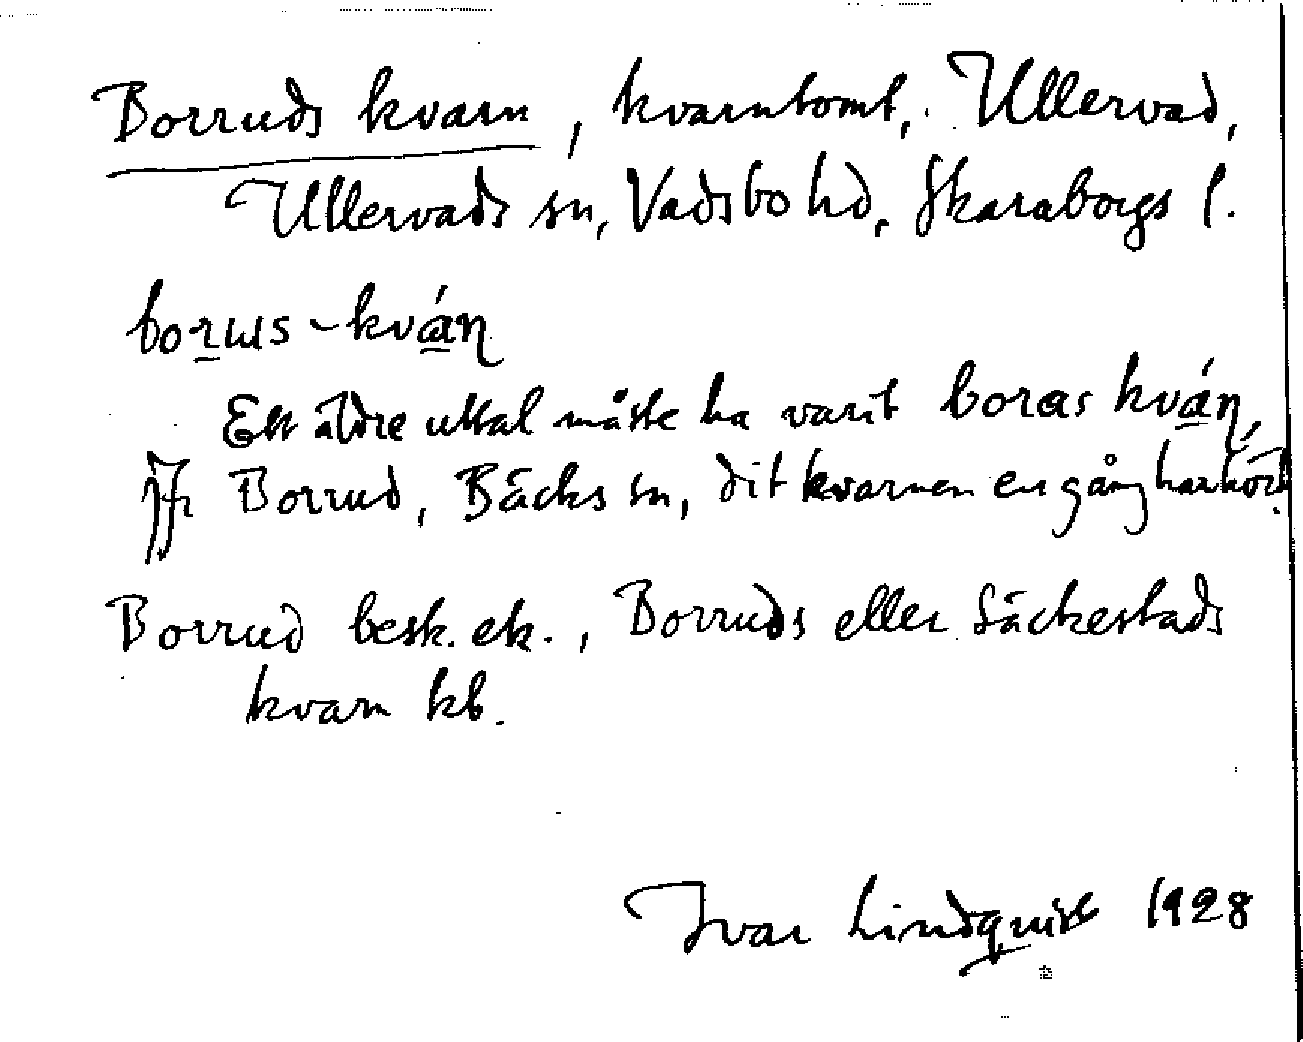 Borruds kvarn, kvarntomt, Ullervad,
Ullervads sn, Vadsbo hd, Skaraborgs l.
borɯs-kván̨
Ett äldre uttal måste ha varit boras kván̨,
Jfr Borrud, Bäcks sn, dit kvarnen en gång har hört.
Borrud besk. ek., Borruds eller Säckestads
kvarn kb.
Ivar Lindquist 1928